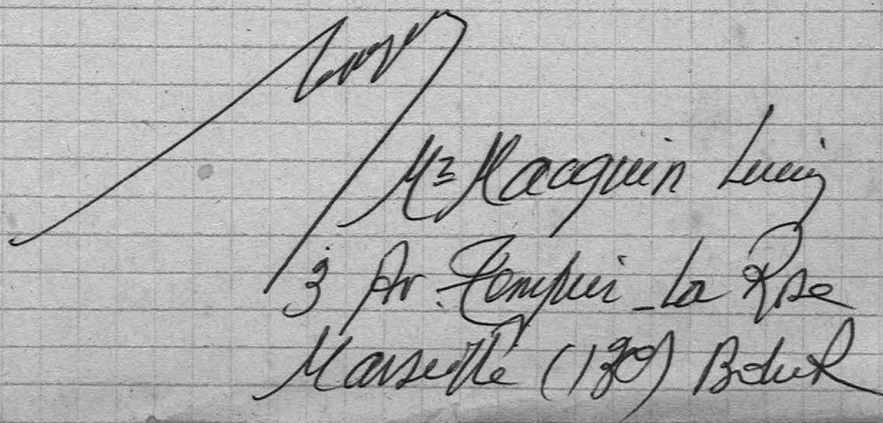 Mr Macquin Lucien
3 Av. Tempier - La Rose
Marseille (13e) B du R